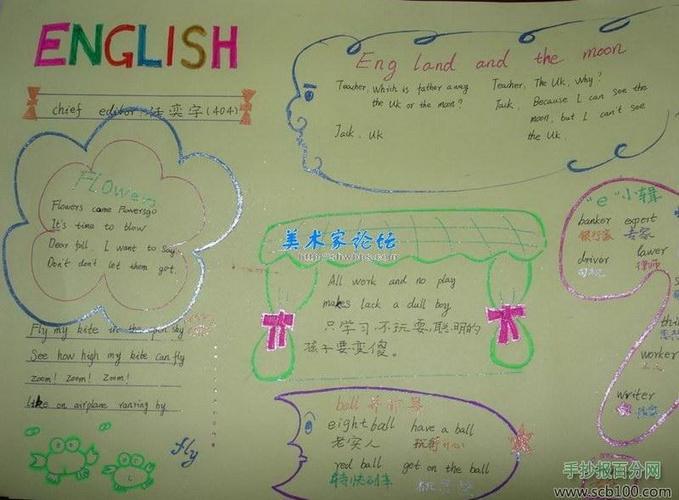 ENGLISH
chief editor: 奕字(404)
Flowers
Flowers come Flowersgo
It's time to blow
Dear fall, I want to say
Don't don't let them got.
Fly my kite in the open sky
See how high my kite can fly
zoom! zoom! zoom!
Like on airplane running by
fly
Eng land and the moon
Teacher, which is father away
the UK or the moon?
Jack, UK
Teacher, The UK, Why?
Jack, Because I can see the
moon, but I can't see
the UK.
美术家论坛
All work and no play
makes lack a dull boy
只学习,不玩耍,聪明的
孩子要变傻。
"e"小辑
banker expert
银行家 专家
driver lawer
司机 律师
worker
writer
ball
eightball have a ball
老实人
red ball get on the ball
特快列车
手抄报百分网
www.scb100.com